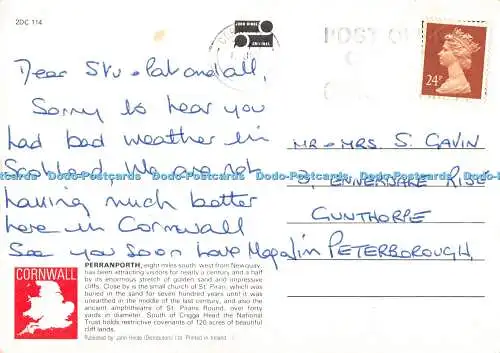 2DC 114
JOHN HINDE
ORIGINAL
POST OFFICE
24P
Dear Stu - Pat and all,
Sorry to hear you
had bad weather in
Scotland, We are not
having much better
here in Cornwall
See you soon Love Mega
MR & MRS S. GAVIN
3, ENNERDALE RISE
GUNTHORPE
PETERBOROUGH
Dodo-Postcards Dodo-Postcards Dodo-Postcards Dodo-Postcards
CORNWALL
PERRANPORTH, eight miles south west from Newquay,
has been attracting visitors for nearly a century and a half
by its enormous stretch of golden sand and impressive
cliffs. Close by is the small church of St. Piran, which was
buried in the sand for seven hundred years until it was
unearthed in the middle of the last century, and also the
ancient amphitheatre of St. Pirans Round, over forty
yards in diameter. South of Cligga Head the National
Trust holds restrictive covenants of 120 acres of beautiful
cliff lands.
Published by John Hinde (Distributors) Ltd. Printed in Ireland